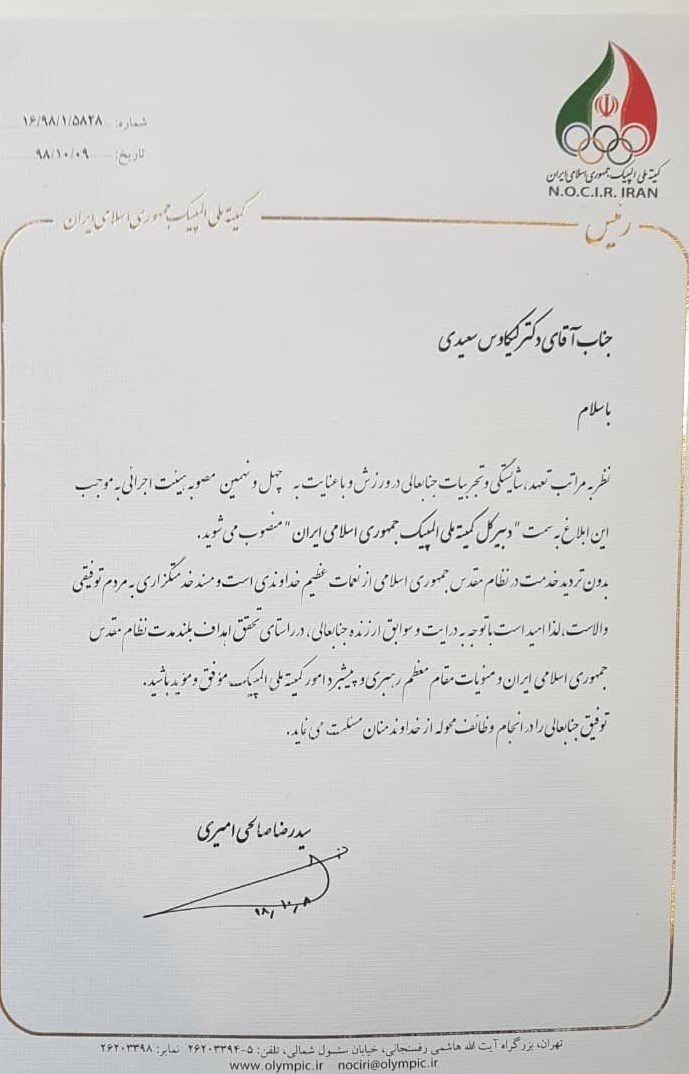 شماره: ۱۶/۹۸/۱/۵۸۲۸
تاریخ: ۹۸/۱۰/۰۹
کمیته ملی المپیک جمهوری اسلامی ایران
N.O.C.I.R. IRAN
رئیس
کمیته ملی المپیک جمهوری اسلامی ایران
جناب آقای دکتر کیکاوس سعیدی
باسلام
نظر به مراتب تعهد، شایستگی و تجربیات جنابعالی در ورزش و با عنایت به چهل و نهمین مصوبه هیئت اجرائی به موجب
این ابلاغ به سمت "دبیرکل کمیته ملی المپیک جمهوری اسلامی ایران" منصوب می شوید.
بدون تردید خدمت در نظام مقدس جمهوری اسلامی از نعمات عظیم خداوندی است و مسند خدمتگزاری به مردم توفیقی
والاست، لذا امید است با توجه به درایت و سوابق ارزنده جنابعالی، در راستای تحقق اهداف بلند مدت نظام مقدس
جمهوری اسلامی ایران و منویات مقام معظم رهبری و پیشبرد امور کمیته ملی المپیک موفق و مؤید باشید.
توفیق جنابعالی را در انجام وظائف محوله از خداوند منان مسئلت می نماید.
سیدرضا صالحی امیری
۹۸/۱۰/۸
تهران، بزرگراه آیت الله هاشمی رفسنجانی، خیابان سئول شمالی، تلفن: ۵-۲۶۲۰۳۳۹۴ نمابر: ۲۶۲۰۳۳۹۸
www.olympic.ir nociri@olympic.ir